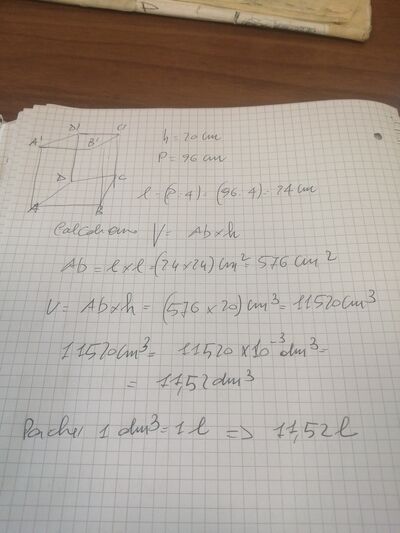 D' C'
A' B'
D C
A B
h = 20 cm
P = 96 cm
l = (P : 4) = (96 : 4) = 24 cm
Calcoliamo V = Ab x h
Ab = l x l = (24 x 24) cm² = 576 cm²
V = Ab x h = (576 x 20) cm³ = 11520 cm³
11520 cm³ = 11520 x 10⁻³ dm³ =
= 11,52 dm³
Poiché 1 dm³ = 1 l => 11,52 l